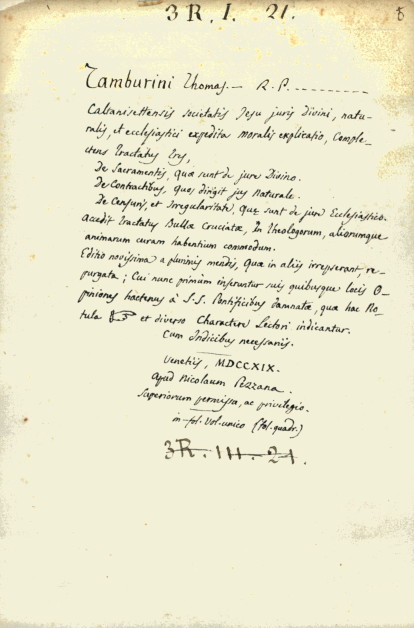 3 R. I. 21.
Tamburini Thomas.— R. P.
Caltanisettensis societatis Jesu juris Divini, natu-
ralis, et ecclesiastici expedita moralis explicatio, Comple-
ctens tractatus tres,
De Sacramentis, quæ sunt de jure Divino.
De Contractibus, quos dirigit jus Naturale.
De Censuris, et Irregularitate, Quæ sunt de jure Ecclesiastico.
Accedit tractatus Bullæ Cruciatæ, In theologorum, aliorumque
animarum curam habentium commodum.
Editio novissima a plurimis mendis, Quæ in aliis irrepserant, re-
purgata; Cui nunc primùm inseruntur suis quibusque locis O-
piniones hactenus à S.S. Pontificibus Damnatæ, quæ hac No-
tula ☞ et diverso Charactere Lectori indicantur.
Cum Indicibus necessariis.
Venetiis, MDCCXIX.
Apud Nicolaum Pezzana.
Superiorum permissu, ac privilegio.
in-fol. Vol. unico (fol. quadr.)
3R. III. 21.